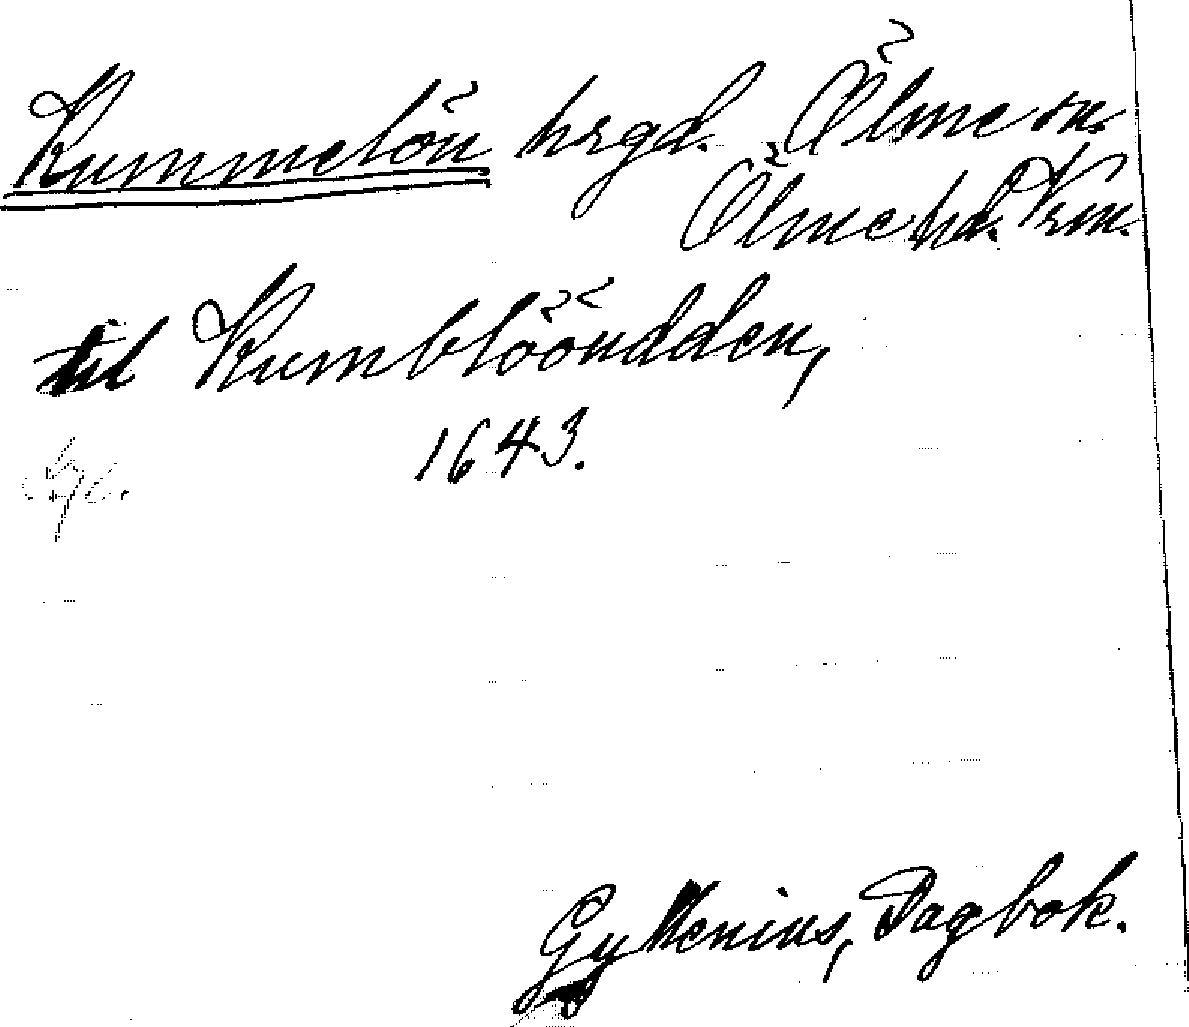 Kummelön hrgd. Ölme sn.
Ölme hd. Vrm.
til Kumblöőudden,
1643.
Gyllenius, Dagbok.